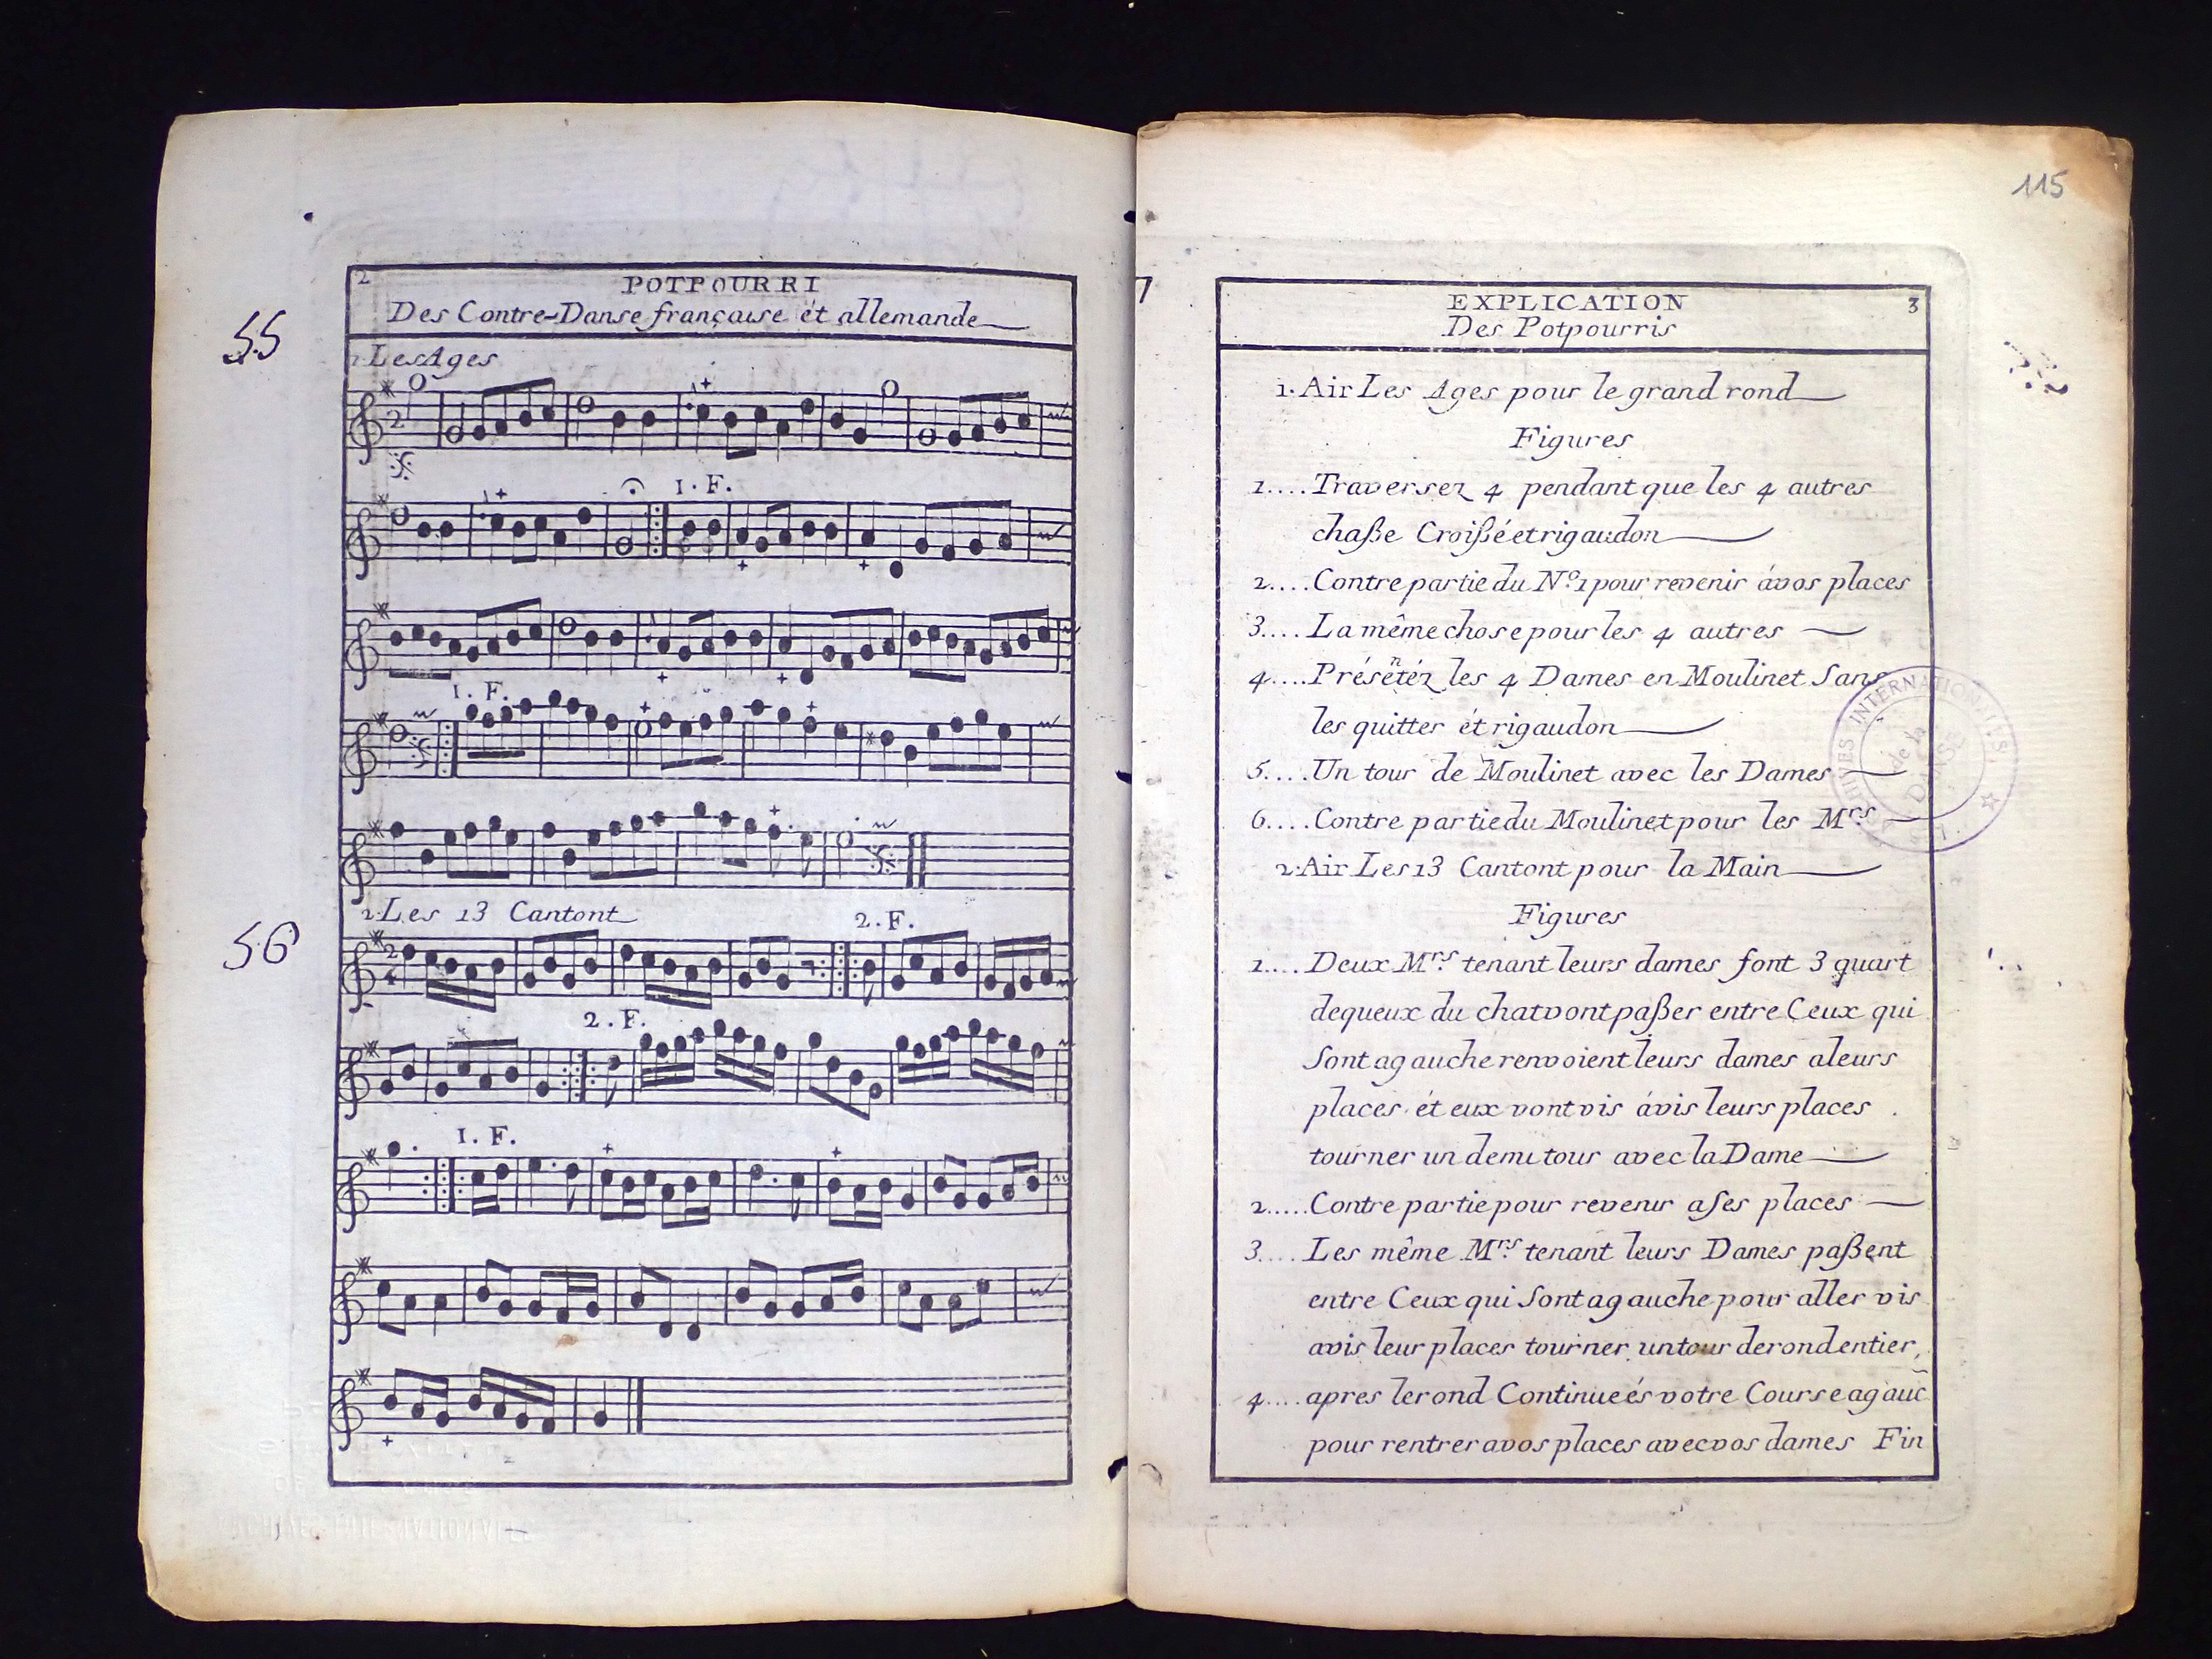 55
56
2
POTPOURRI
Des Contre-Danse française ét allemande
1 Les Ages
1. F.
1. F.
2 Les 13 Cantont
2. F.
2. F.
1. F.
115
EXPLICATION 3
Des Potpourris
1. Air Les Ages pour le grand rond
Figures
1.... Traversez 4 pendant que les 4 autres
chaße Croißé et rigaudon
2.... Contre partie du No. 1 pour revenir ávos places
3.... La même chose pour les 4 autres
4.... Présentéz les 4 Dames en Moulinet Sans
les quitter ét rigaudon
5.... Un tour de Moulinet avec les Dames
6.... Contre partie du Moulinet pour les Mrs
2. Air Les 13 Cantont pour la Main
Figures
1.... Deux Mrs tenant leurs dames font 3 quart
de queux du chat vont paßer entre Ceux qui
Sont a gauche renvoient leurs dames a leurs
places ét eux vont vis ávis leurs places
tourner un demi tour avec la Dame
2..... Contre partie pour revenir a Ses places
3.... Les même Mrs tenant leurs Dames paßent
entre Ceux qui Sont a gauche pour aller vis
avis leur places tourner un tour de rond entier,
4.... apres le rond Continueés votre Course a gauc̃
pour rentrer a vos places avec vos dames Fin
ARCHIVES INTERNATIONALES
de la
DANSE